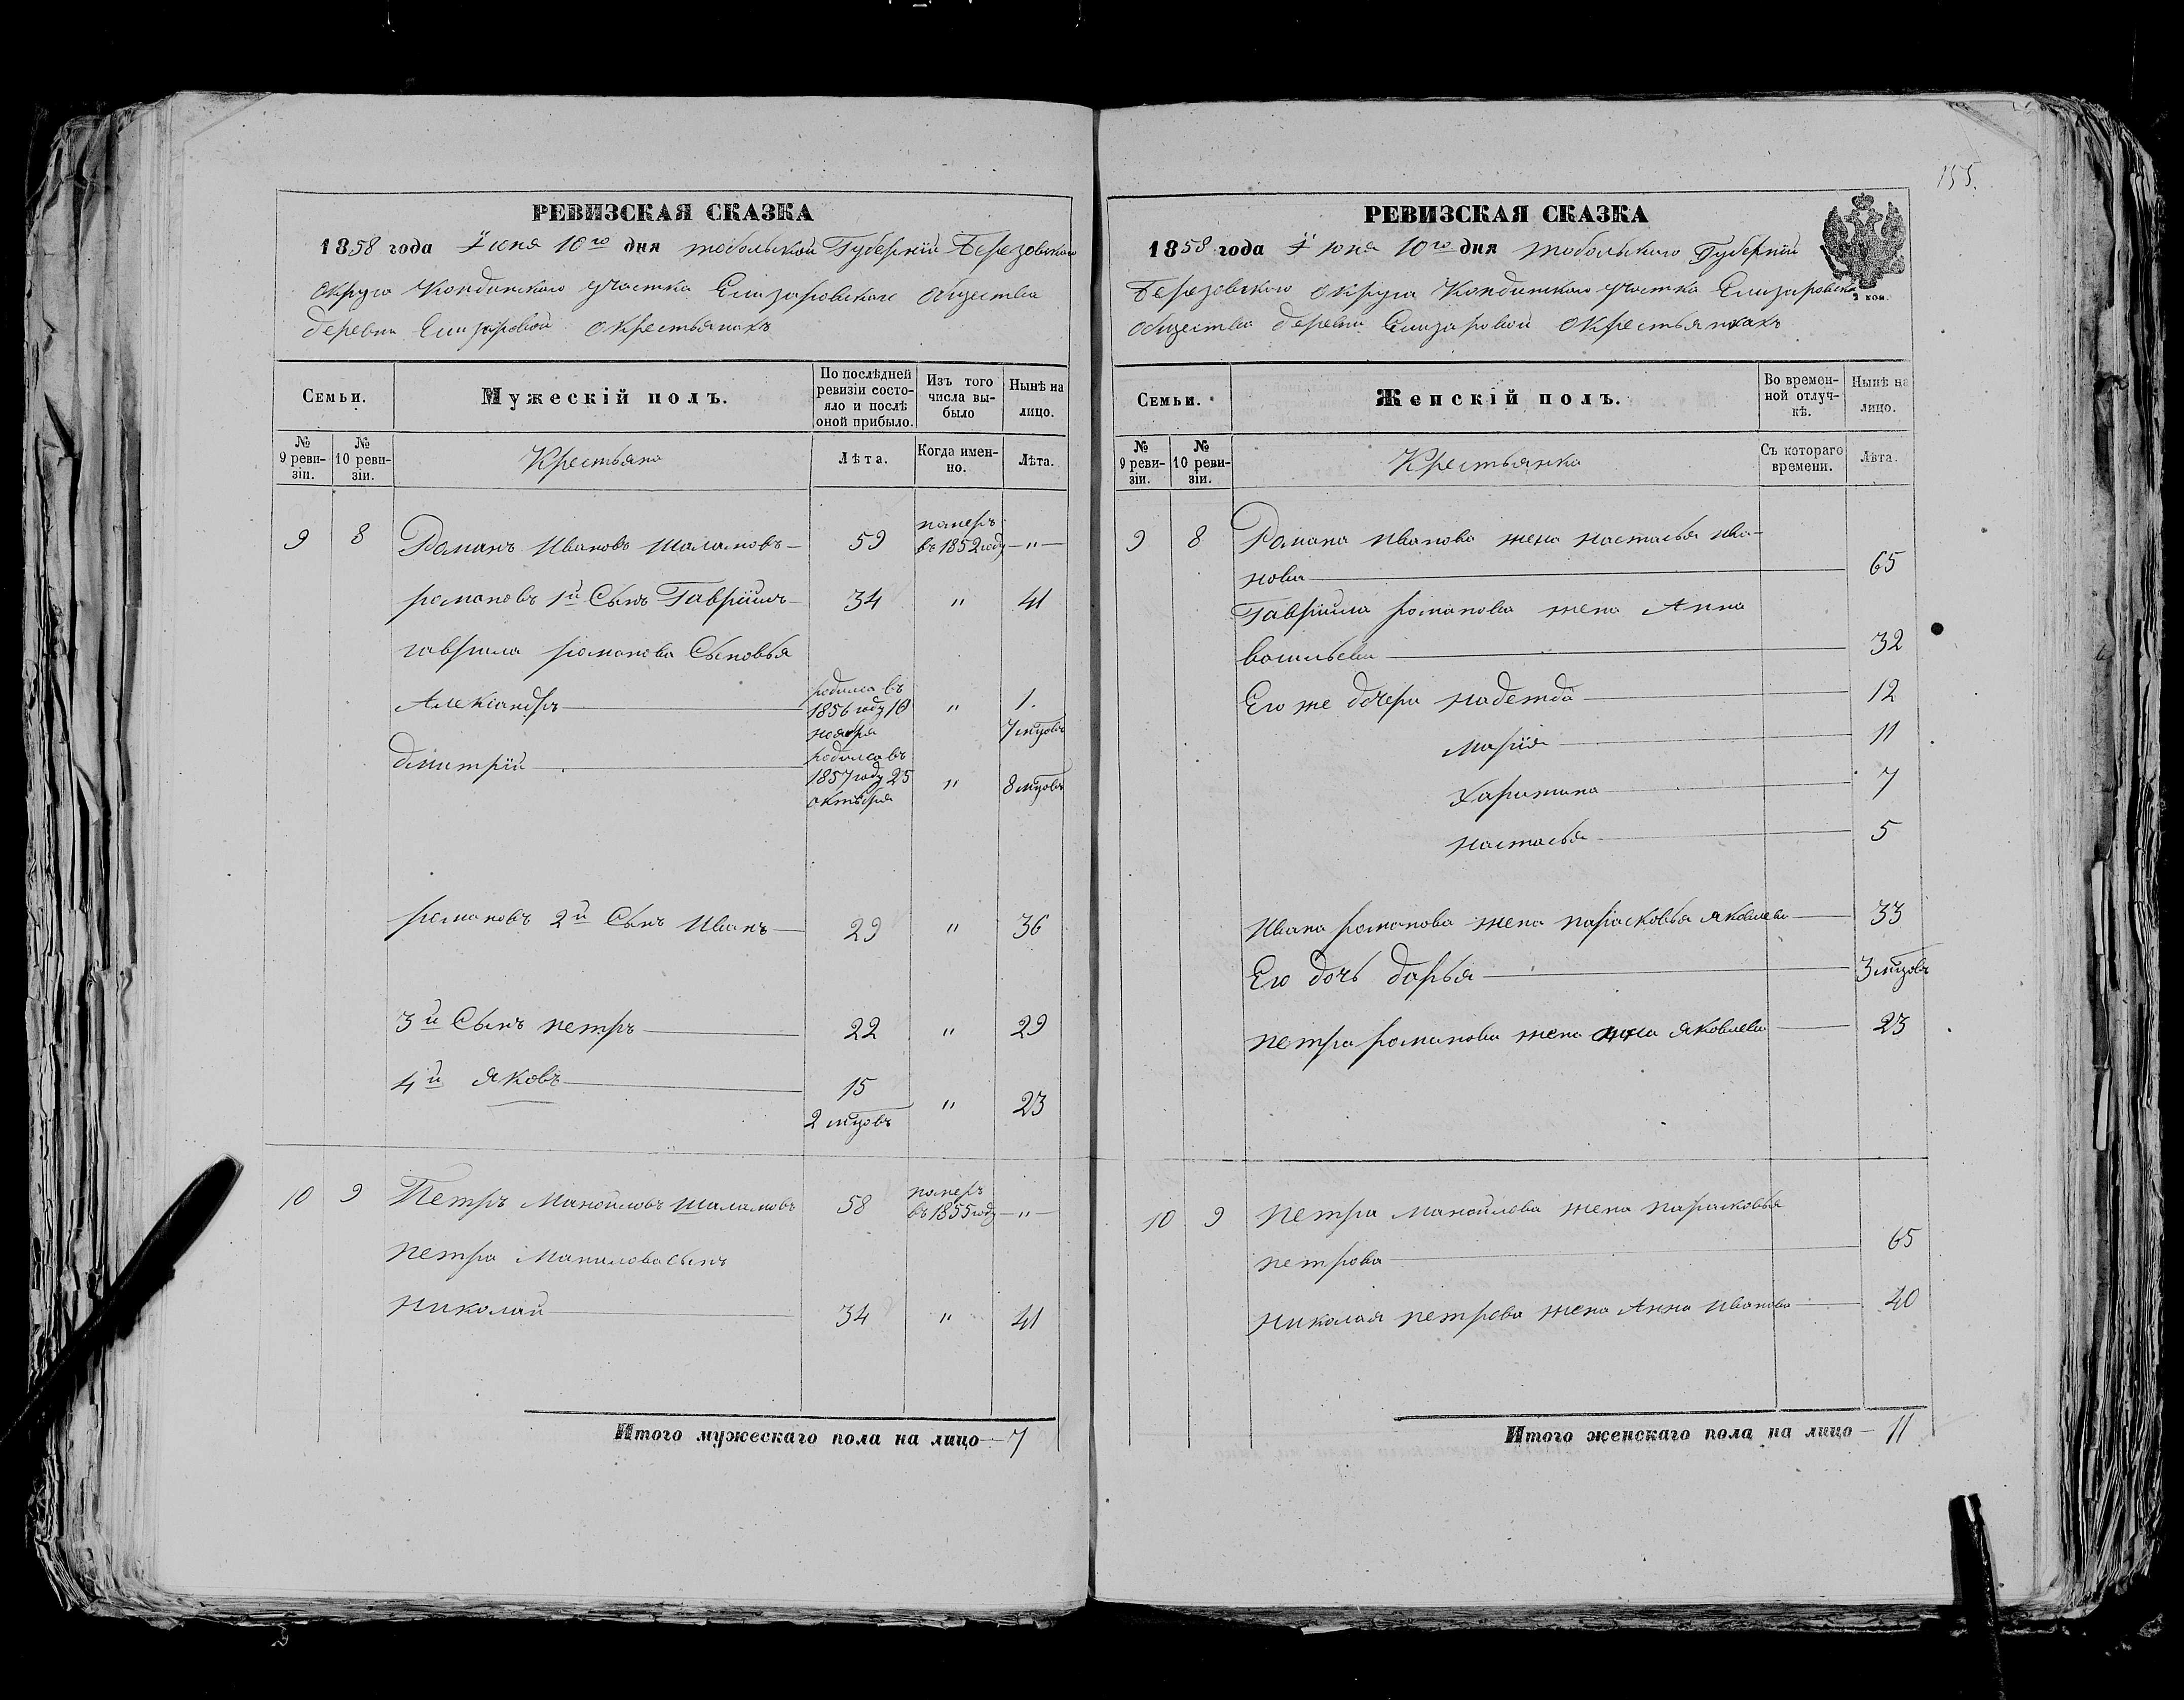 РЕВИЗСКАЯ СКАЗКА
1858 года Іюня 10го дня тобольской Губерніи Березовскаго
округа Кондинскаго участка Елизаровскаго общества
деревни Елизаровой о крестьянахъ
Семьи.
Мужескій полъ.
По послѣдней ревизіи состояло и послѣ оной прибыло.
Изъ того числа выбыло
Нынѣ на лицо.
№ 9 ревизіи.
№ 10 ревизіи.
Крестьяна
Лѣта.
Когда именно.
Лѣта.
9 8 Романъ Ивановъ Шаламовъ 59 померъ въ 1852 году "
романовъ 1й Сынъ Гавріилъ 34 " 41
гаврила романова Сыновья
Александръ родился въ 1856 году 10 ноября " 1. 7 мцовъ
дмитрій родился въ 1857 году 25 октября " 8 мцовъ
романовъ 2й Сынъ Иванъ 29 " 36
3й Сынъ петръ 22 " 29
4й яковъ 15 2 мцовъ " 23
10 9 Петръ Манойловъ Шаламовъ 58 померъ въ 1855 году "
петра Манилова сынъ
николай 34 " 41
Итого мужескаго пола на лицо 7
155.
РЕВИЗСКАЯ СКАЗКА
1858 года Іюня 10го дня тобольскаго Губерніи
Березовскаго округа Кондинскаго участка Елизаровска
общества деревни Елизаровой о крестьянкахъ
2 коп.
Семьи.
Женскій полъ.
Во временной отлучкѣ.
Нынѣ на лицо.
№ 9 ревизіи.
№ 10 ревизіи.
Крестьянка
Съ котораго времени.
Лѣта.
9 8 Романа иванова жена настасья ива-
нова 65
Гавріила романова жена Анна
васильева 32
Его же дочери надежда 12
марія 11
Харитина 7
настасья 5
ивана романова жена парасковья яковлева 33
Его дочь дарья 3 мцовъ
петра романова жена анна яковлева 23
10 9 петра манойлова жена парасковья
петрова 65
николая петрова жена Анна иванова 40
Итого женскаго пола на лицо 11